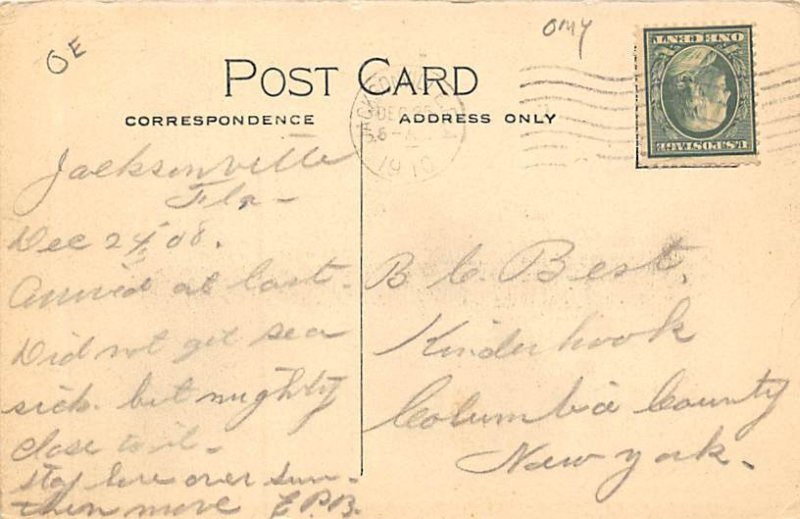 OE
OMY
ONE CENT
U.S. POSTAGE
POST CARD
CORRESPONDENCE
ADDRESS ONLY
DEC
1910
Jacksonville
Fla -
Dec 24/08.
Arrived at last.
Did not get sea
sick. but mighty
close to it -
stay here over Sun-
then move E.P.B.
B C. Best,
Kinderhook
Columbia County
New York.